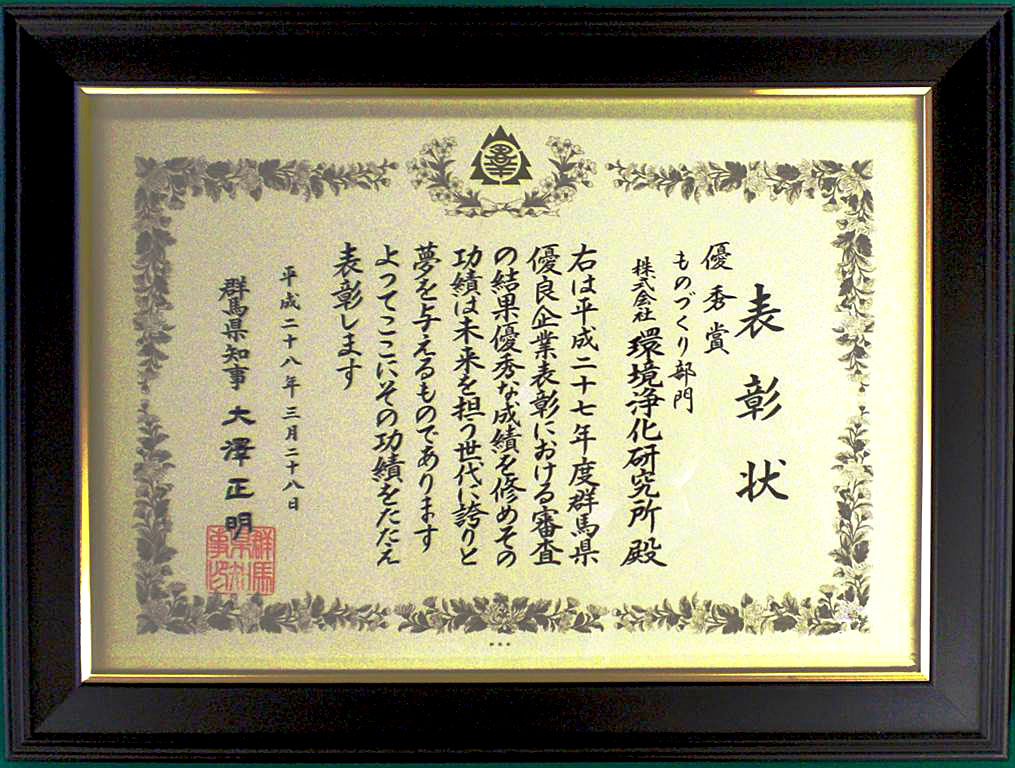 表彰状
優秀賞
ものづくり部門
株式会社 環境浄化研究所 殿
右は平成二十七年度群馬県
優良企業表彰における審査
の結果優秀な成績を修めその
功績は未来を担う世代に誇りと
夢を与えるものであります
よってここにその功績をたたえ
表彰します
平成二十八年三月二十八日
群馬県知事 大澤正明
群馬
県知
事印